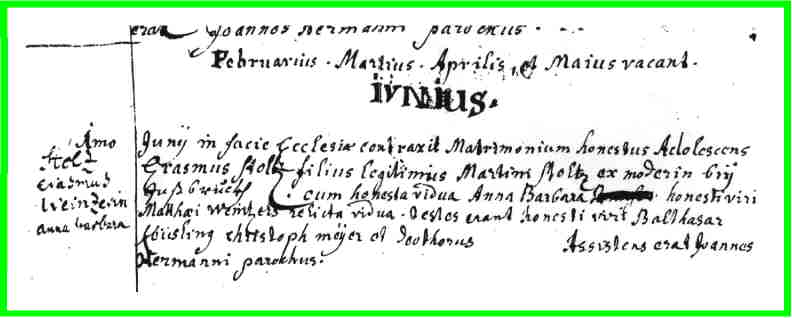 erat Joannes Hermanni parochus.
Februarius. Martius. Aprilis, et Maius vacant.
IVNIUS.
Imo Junij in facie Ecclesiæ contraxit Matrimonium honestus Adolescens
Stoltz Erasmus Stoltz filius legitimus Martini Stoltz ex
Erasmus cum honesta vidua Anna Barbara honesti viri
anna barbara relicta vidua. testes erant honesti viri Balthasar
Christoph meÿer et Assistens erat Joannes
Hermanni parochus.